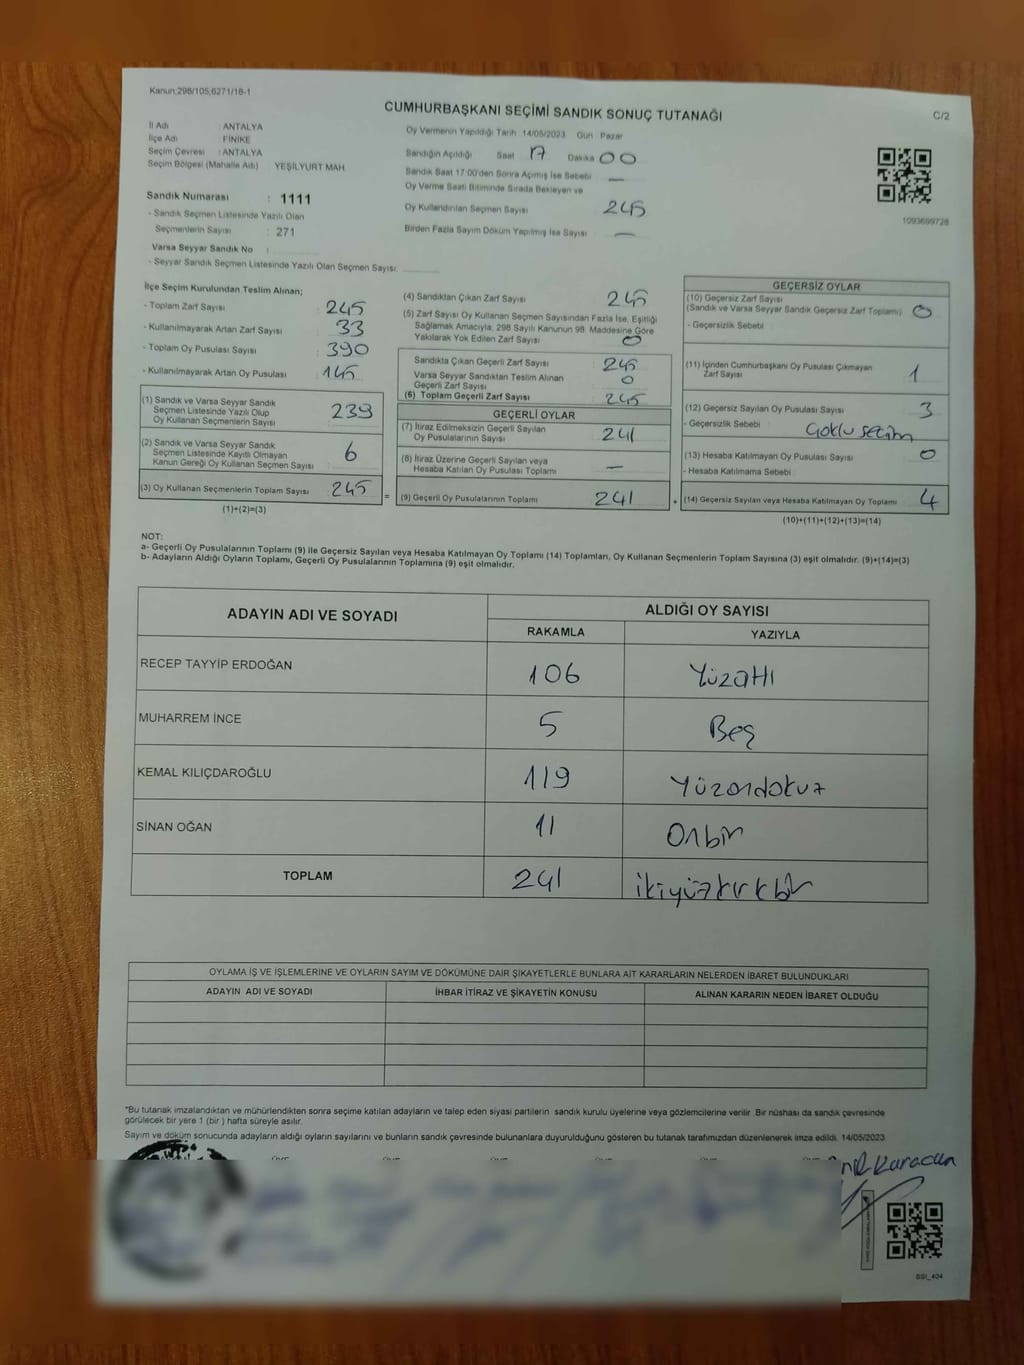 Kanun;298/105,6271/18-1
CUMHURBAŞKANI SEÇİMİ SANDIK SONUÇ TUTANAĞI
C/2
İl Adı : ANTALYA
İlçe Adı : FİNİKE
Seçim Çevresi : ANTALYA
Seçim Bölgesi (Mahalle Adı) YEŞİLYURT MAH
Sandık Numarası : 1111
- Sandık Seçmen Listesinde Yazılı Olan
Seçmenlerin Sayısı : 271
Varsa Seyyar Sandık No :
- Seyyar Sandık Seçmen Listesinde Yazılı Olan Seçmen Sayısı:
Oy Vermenin Yapıldığı Tarih :14/05/2023 Gün : Pazar
Sandığın Açıldığı Saat 17 Dakika 00
Sandık Saat 17:00'den Sonra Açımış İse Sebebi —
Oy Verme Saati Bitiminde Sırada Bekleyen ve
Oy Kullandırılan Seçmen Sayısı 245
Birden Fazla Sayım Döküm Yapılmış İse Sayısı —
1093699728
İlçe Seçim Kurulundan Teslim Alınan;
- Toplam Zarf Sayısı : 245
- Kullanılmayarak Artan Zarf Sayısı : 33
- Toplam Oy Pusulası Sayısı : 390
- Kullanılmayarak Artan Oy Pusulası : 145
(1) Sandık ve Varsa Seyyar Sandık
Seçmen Listesinde Yazılı Olup
Oy Kullanan Seçmenlerin Sayısı : 239
(2) Sandık ve Varsa Seyyar Sandık
Seçmen Listesinde Kayıtlı Olmayan
Kanun Gereği Oy Kullanan Seçmen Sayısı : 6
(3) Oy Kullanan Seçmenlerin Toplam Sayısı : 245
(1)+(2)=(3)
(4) Sandıktan Çıkan Zarf Sayısı 245
(5) Zarf Sayısı Oy Kullanan Seçmen Sayısından Fazla İse, Eşitliği
Sağlamak Amacıyla, 298 Sayılı Kanunun 98. Maddesine Göre
Yakılarak Yok Edilen Zarf Sayısı 0
Sandıkta Çıkan Geçerli Zarf Sayısı 245
Varsa Seyyar Sandıktan Teslim Alınan
Geçerli Zarf Sayısı 0
(6) Toplam Geçerli Zarf Sayısı 245
GEÇERLİ OYLAR
(7) İtiraz Edilmeksizin Geçerli Sayılan
Oy Pusulalarının Sayısı 241
(8) İtiraz Üzerine Geçerli Sayılan veya
Hesaba Katılan Oy Pusulası Toplamı —
= (9) Geçerli Oy Pusulalarının Toplamı 241
GEÇERSİZ OYLAR
(10) Geçersiz Zarf Sayısı
(Sandık ve Varsa Seyyar Sandık Geçersiz Zarf Toplamı) 0
- Geçersizlik Sebebi :
(11) İçinden Cumhurbaşkanı Oy Pusulası Çıkmayan
Zarf Sayısı 1
(12) Geçersiz Sayılan Oy Pusulası Sayısı 3
- Geçersizlik Sebebi : Çoklu seçim
(13) Hesaba Katılmayan Oy Pusulası Sayısı 0
- Hesaba Katılmama Sebebi :
+ (14) Geçersiz Sayılan veya Hesaba Katılmayan Oy Toplamı 4
(10)+(11)+(12)+(13)=(14)
NOT:
a- Geçerli Oy Pusulalarının Toplamı (9) ile Geçersiz Sayılan veya Hesaba Katılmayan Oy Toplamı (14) Toplamları, Oy Kullanan Seçmenlerin Toplam Sayısına (3) eşit olmalıdır. (9)+(14)=(3)
b- Adayların Aldığı Oyların Toplamı, Geçerli Oy Pusulalarının Toplamına (9) eşit olmalıdır.
ADAYIN ADI VE SOYADI
ALDIĞI OY SAYISI
RAKAMLA YAZIYLA
RECEP TAYYİP ERDOĞAN 106 Yüzaltı
MUHARREM İNCE 5 Beş
KEMAL KILIÇDAROĞLU 119 Yüzondokuz
SİNAN OĞAN 11 Onbir
TOPLAM 241 ikiyüzkırkbir
OYLAMA İŞ VE İŞLEMLERİNE VE OYLARIN SAYIM VE DÖKÜMÜNE DAİR ŞİKAYETLERLE BUNLARA AİT KARARLARIN NELERDEN İBARET BULUNDUKLARI
ADAYIN ADI VE SOYADI İHBAR İTİRAZ VE ŞİKAYETİN KONUSU ALINAN KARARIN NEDEN İBARET OLDUĞU
*Bu tutanak imzalandıktan ve mühürlendikten sonra seçime katılan adayların ve talep eden siyasi partilerin sandık kurulu üyelerine veya gözlemcilerine verilir .Bir nüshası da sandık çevresinde
görülecek bir yere 1 (bir ) hafta süreyle asılır.
Sayım ve döküm sonucunda adayların aldığı oyların sayılarını ve bunların sandık çevresinde bulunanlara duyurulduğunu gösteren bu tutanak tarafımızdan düzenlenerek imza edildi. 14/05/2023
SSI_404